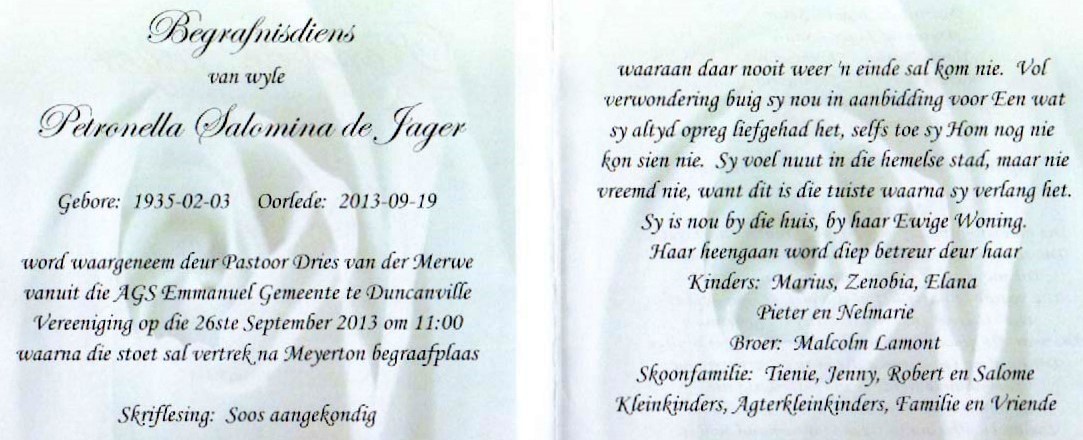 Begrafnisdiens
van wyle
Petronella Salomina de Jager
Gebore: 1935-02-03 Oorlede: 2013-09-19
word waargeneem deur Pastoor Dries van der Merwe
vanuit die AGS Emmanuel Gemeente te Duncanville
Vereeniging op die 26ste September 2013 om 11:00
waarna die stoet sal vertrek na Meyerton begraafplaas
Skriflesing: Soos aangekondig
waaraan daar nooit weer 'n einde sal kom nie. Vol
verwondering buig sy nou in aanbidding voor Een wat
sy altyd opreg liefgehad het, selfs toe sy Hom nog nie
kon sien nie. Sy voel nuut in die hemelse stad, maar nie
vreemd nie, want dit is die tuiste waarna sy verlang het.
Sy is nou by die huis, by haar Ewige Woning.
Haar heengaan word diep betreur deur haar
Kinders: Marius, Zenobia, Elana
Pieter en Nelmarie
Broer: Malcolm Lamont
Skoonfamilie: Tienie, Jenny, Robert en Salome
Kleinkinders, Agterkleinkinders, Familie en Vriende